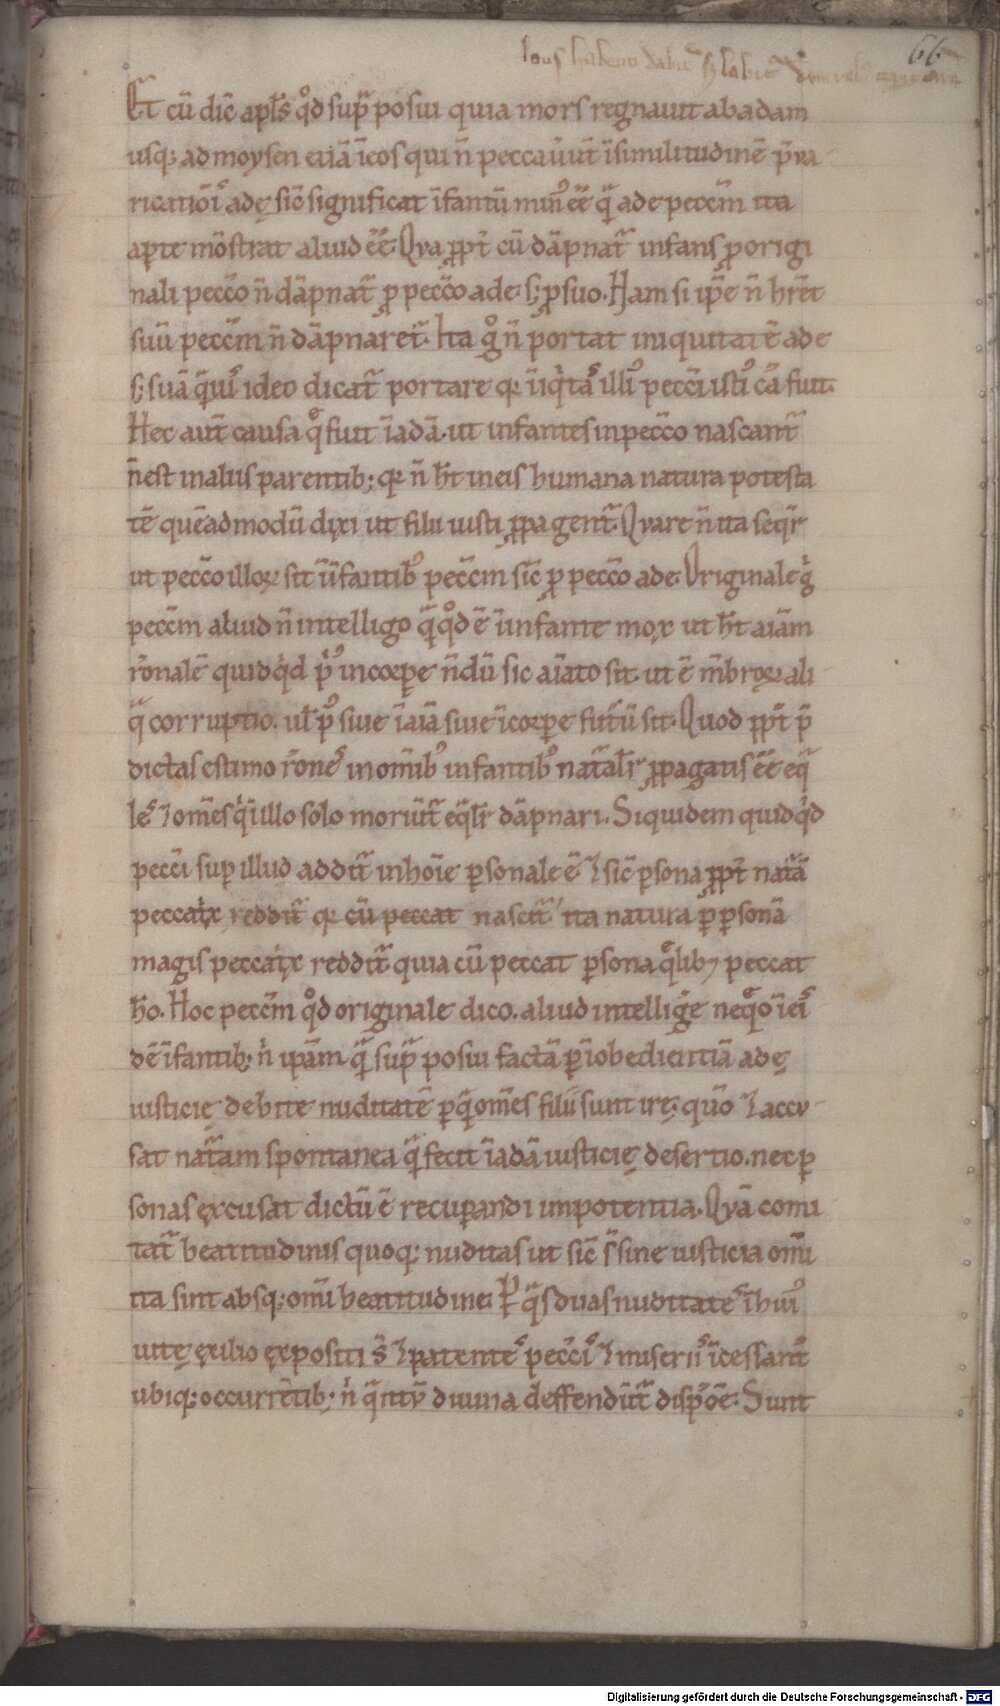 66
Et cū dic̄ apl̄s qd̊ supͣ posui quia mors regnauit ab adam
usq; ad moysen etiā īeos qui n̄ peccauer̄t ī similitudinē p̄ua
ricatiōīs adę sic̄ significat īfantū minꝰ ēē qͣ̄ ade pecc̄m ita
aꝑte mōstrat aliud ēē. Qua ꝓpt̄ cū dāpnatͬ infans ꝓ origi
nali pecc̄o n̄ dāpnatͬ ꝓ pecc̄o ade. s; ꝓ suo. Nam si ip̄e n̄ hr̄et
suū pecc̄m n̄ dāpnaretͬ. Ita gͦ n̄ portat iniquitatē ade
s; suā qͣ̄uis ideo dicatͬ portare qꝛ īiqͥtas illiꝰ pecc̄i istiꝰ cā fuit.
Hec aut̄ causa qͤ fuit ī adā. ut infantes in pecc̄o nascantͬ
n̄ est in aliis parentib; qꝛ n̄ h̄t in eis humana natura potesta
tē quēadmodū dixi ut filii iusti ꝓpagentͬ. Quare n̄ ita seqͥr̄
ut pecc̄o illoꝝ sit ī īfantibꝰ pecc̄m sic̄ ꝓ pecc̄o ade. Originale gͥ
pecc̄m aliud n̄ intelligo qͣ̄ qd̊ ē ī infante mox ut h̄t aīam
rōnalē quidqͥd pͥꝰ in corpe n̄dū sic aīato sit. ut ē mēbroꝝ ali
qͣ corruptio. ul̄ pꝰ siue ī aīa siue ī corpe futuͬ̄ sit. Quod ꝓpt̄ p̄
dictas estimo rōnes in omībꝰ infantibꝰ natͣal̄r ꝓpagatis ēē eqͣ
les ⁊ omēs qͥ ī illo solo moriūtͬ eqͣl̄r dāpnari. Siquidem quidqͥd
pecc̄i sup illud additͬ in hoīe ꝑsonale ē. ⁊ sic̄ ꝑsona ꝓpt̄ natͣā
peccatͥx redditͬ qꝛ cū peccat nascitͬ ita natura ꝓ ꝑsonā
magis peccatͥx redditͬ quia cū peccat ꝑsona qͤlibꝫ peccat
hō. Hoc pecc̄m qd̊ originale dico. aliud intelligͤe neqͤo ī eis
dē īfantib; nͥ ipam qͣ̄ supͣ posui factā ꝑ īobedientiā adę
iusticię debite nuditatē ꝑ qͣ̄ omēs filii sunt irę; quō ⁊ accu
sat natͣam spontanea qͣ̄ fecit ī adā iusticię desertio. nec ꝑ
sonas excusat dictū ē recuperandi impotentia. Quā comi
tatͬ beatitudinis quoq; nuditas ut sic̄ s̄ sine iusticia omī
ita sint absq; omī beatitudine. Pͬ qͣs duas nuditates ī huiꝰ
uitę exilio expositi s̄ ⁊ patentes pecc̄is ⁊ miseriis īcessant̄
ubiq; occurrētib; nͥ qͣntū diuina deffendūtͬ dispōe. Sunt
Digitalisierung gefördert durch die Deutsche Forschungsgemeinschaft - DFG